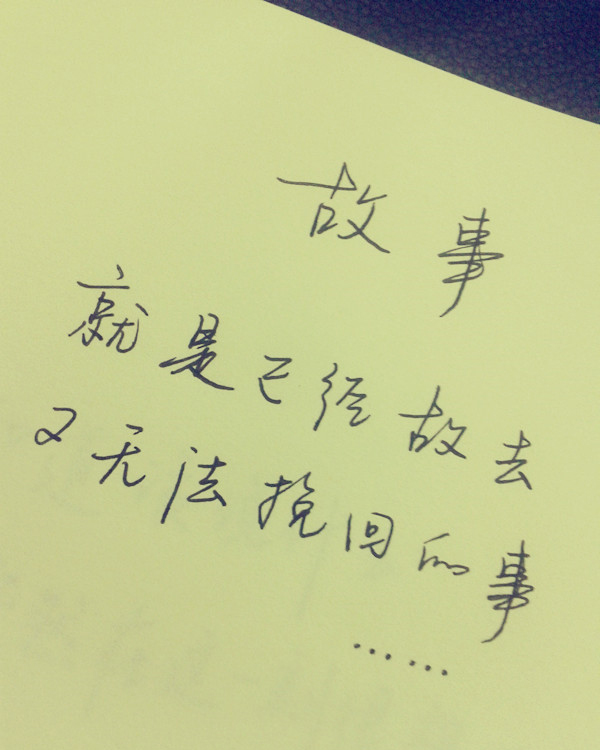 故事
就是已经故去
又无法挽回的事
……